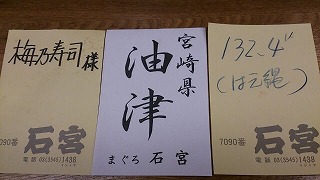 梅乃寿司様
7090番
石宮
電話 03(3545)1438
イシミヤ
宮崎県
油津
まぐろ 石宮
132.4"
(はえ縄)
7090番
石宮
電話 03(3545)1438
イシミヤ